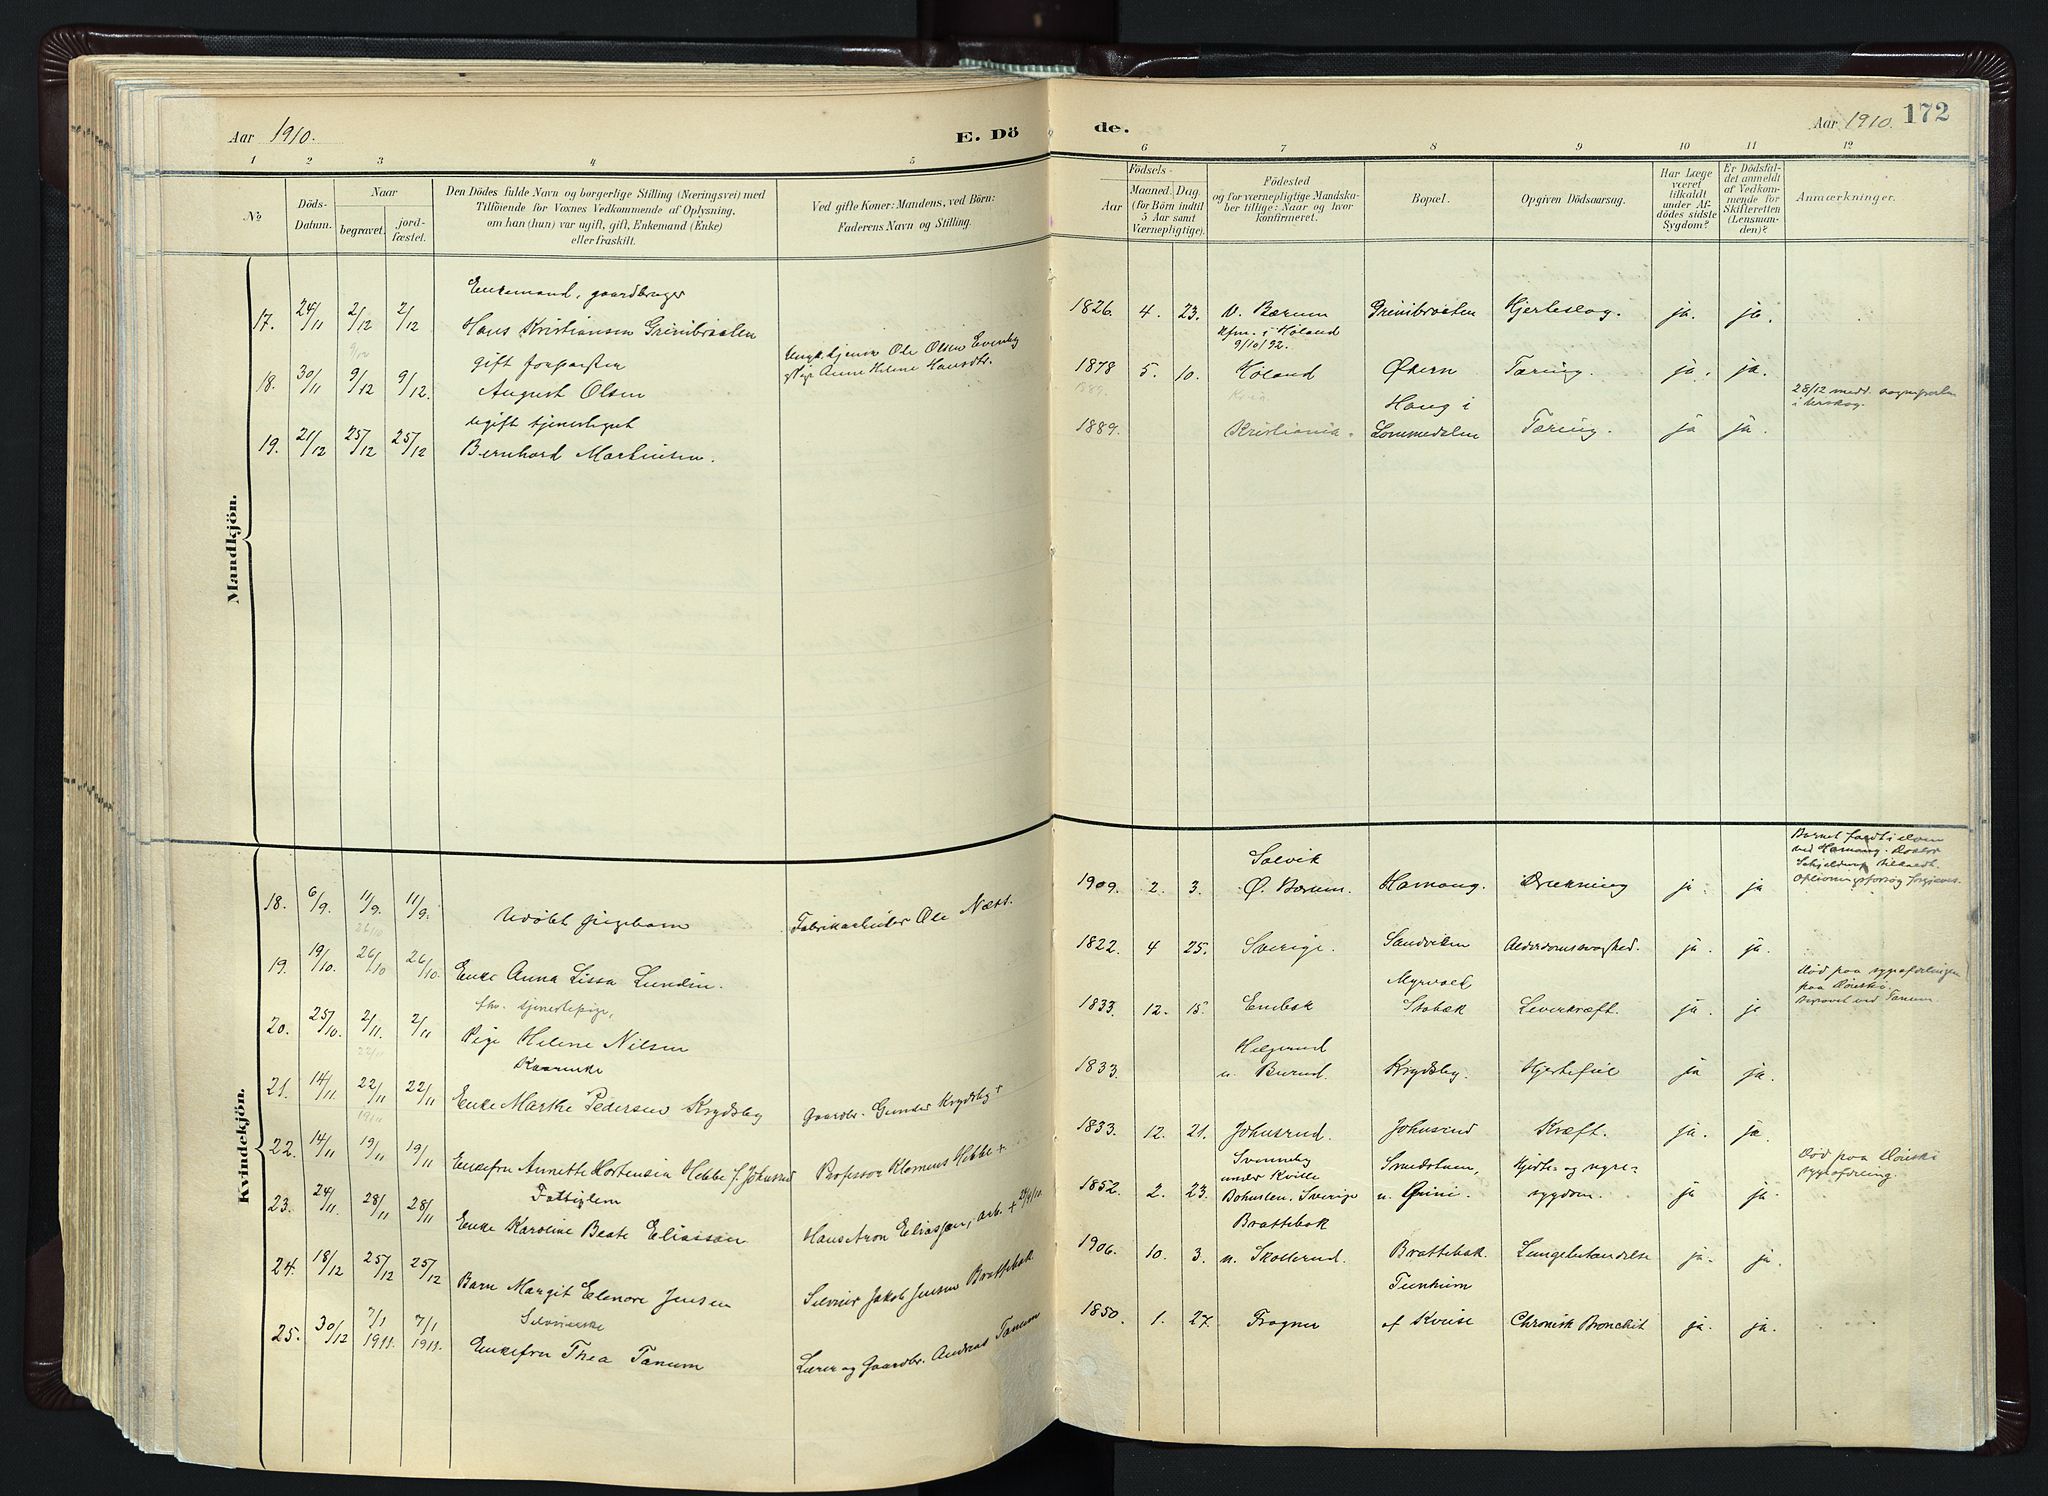 Aar 1910.
E. Dö
de.
Aar 1910.
172
1 2 3 4 5
6 7 8 9 10 11 12
No
Döds-
Datum.
Naar
begravet.
jord-
fæstet.
Den Dödes fulde Navn og borgerlige Stilling (Næringsvei) med
Tilföiende for Voxnes Vedkommende af Oplysning,
om han (hun) var ugift, gift, Enkemand (Enke)
eller fraskilt.
Ved gifte Koner: Mandens, ved Börn:
Faderens Navn og Stilling.
Födsels-
Aar
Maaned. Dag.
(for Börn indtil
5 Aar samt
Værnepligtige).
Födested
og for værnepligtige Mandska-
ber tillige: Naar og hvor
konfirmeret.
Bopæl.
Opgiven Dödsaarsag.
Har Læge
været
tilkaldt
under Af-
dödes sidste
Sygdom?
Er Dödsfal-
det anmeldt
af Vedkom-
mende for
Skifteretten
(Lensman-
den)?
Anmærkninger.
Mandkjön.
Enkemand, gaardbruger
17. 24/11 2/12 2/12 Hans Kristiansen Grinibraaten
1826. 4. 23. V. Bærum Grinibraaten Hjerteslag. ja. ja.
Kfm. i Høland
9/10/92.
9/12
gift forpagter
18. 30/11 9/12 9/12. August Olsen
Ole Olsen
Anne Helene Hansdtr.
1878 5. 10. Høland Økern Tæring. ja. ja.
1889.
28/12 medd. sognepresten
i Urskog.
ugift tjenestegut
19. 21/12 25/12 25/12 Bernhard Martinsen.
Haug i
1889. Kristiania. Lommedalen Tæring. ja ja.
Kvindekjön.
18. 6/9. 11/9. 11/9. Udøbt pigebarn Fabrikarbeider Ole Næss.
Solvik
1909. 2. 3. Ø. Bærum. Hamang. Drukning ja ja
Barnet fandt i elven
ved Hamang. Doktor
Schjelderup tilkaldt.
Oplivningsforsøg forgjæves.
26/10
19. 19/10. 26/10 26/10. Enke Anna Lissa Lundin.
1822. 4 25. Sverige. Sandviken Alderdomssvaghed. ja. ja.
fhv. tjenestepige,
20. 25/10. 2/11. 2/11 Pige Helene Nilsen
Myrvold
1833. 12. 15. Enebak Stabæk Leverkræft. ja. ja
død paa sygeafdelingen
paa Dønski.
Begravet ved Tanum.
22/11
Kaarenke
21. 14/11. 22/11 22/11 Enke Marthe Pedersen Krydsby gaardbr. Gunder Krydsby +
Helgerud
1833. u. Burud. Krydsby. Hjertefeil ja ja.
19/11
22. 14/11 19/11 19/11 Enkefru Annette Hortensia Hebbe f. Johnsrud Professor Klemens Hebbe +
1833. 12. 21. Johnsrud. Johnsrud Kræft. ja. ja.
Fattiglem
23. 24/11. 28/11 28/11 Enke Karoline Beate Eliasson Hans Aron Eliasson, arb. +
Svenneby
under Kville Smedstuen, Hjerte- og nyre-
1852. 2. 23. Bohuslen. Sverige u. Grini. sygdom. ja ja.
død paa Dønski
sygeafdeling.
24. 18/12 25/12 25/12 Barn Margit Elenore Jensen Selveier Jakob Jensen Brattebak
Brattebak
1906. 10. 3. u. Skollerud. Brattebak. Lungebetændelse ja. ja.
Selveierenke
25. 30/12 7/1 1911. 7/1 1911. Enkefru Thea Tanum Lærer og Gaardbr. Andreas Tanum
Tunheim
1850. 1. 27. Frogner af Kveise Chronisk Bronchit ja. ja.